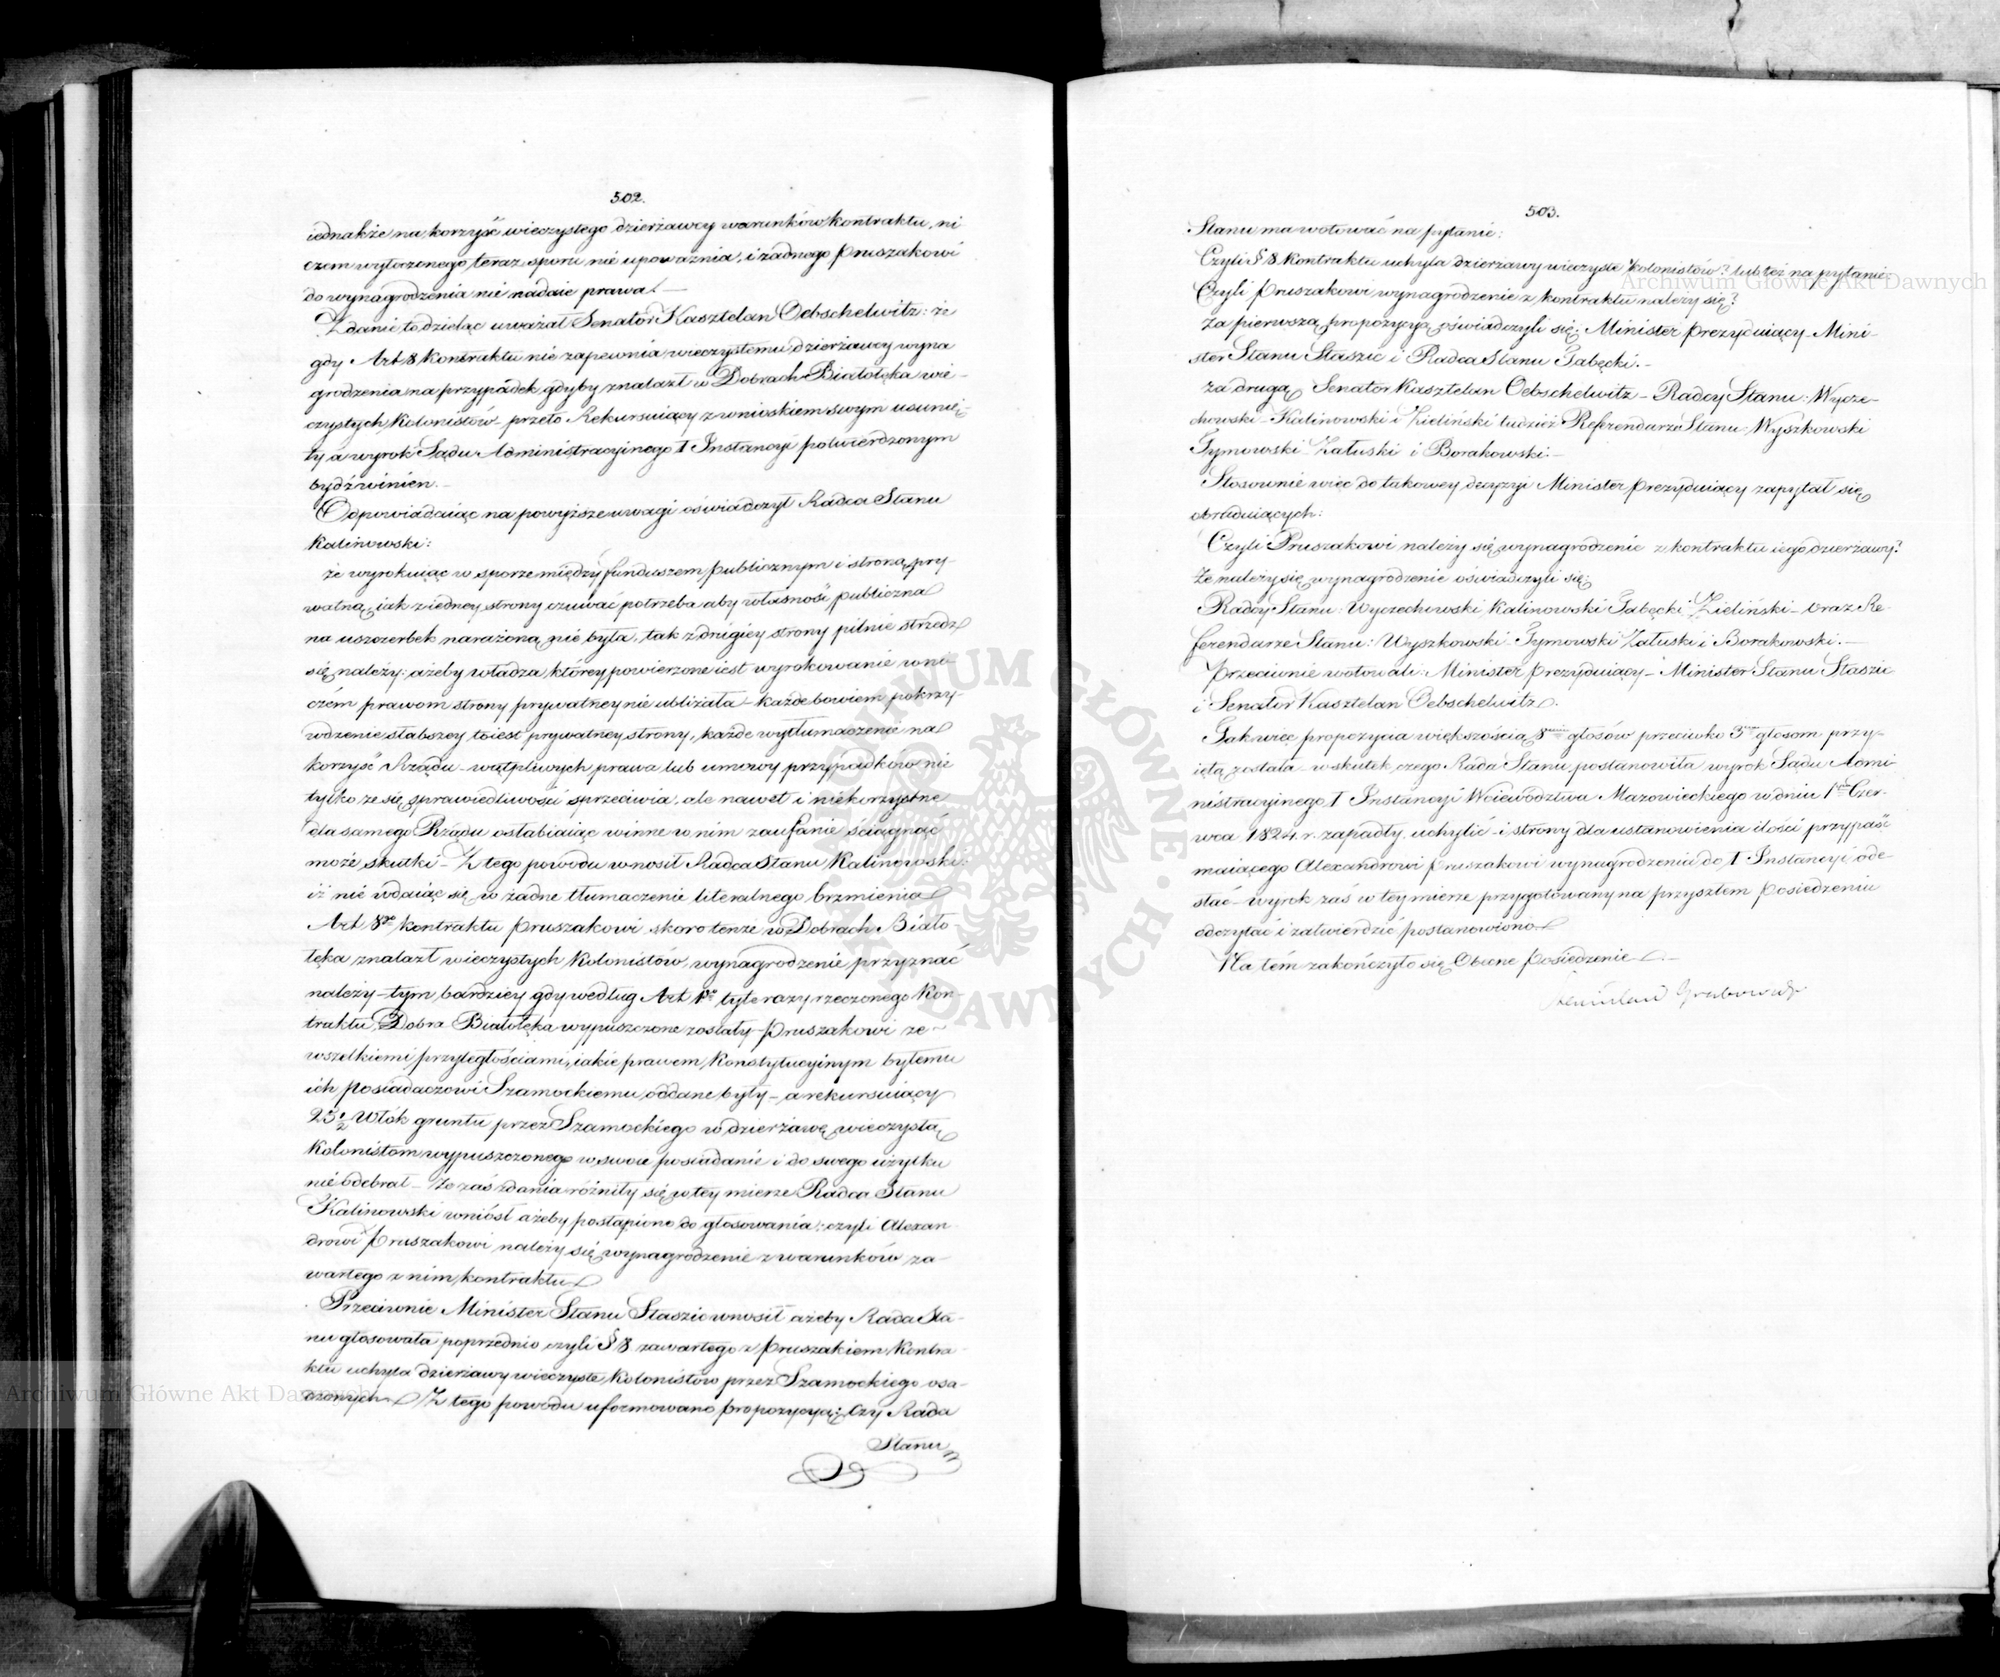 502.
iednakże na korzyść wieczystego dzierżawcy warunków kontraktu, ni
czem wytoczonego teraz sporu nie upoważnia, i żadnego Pruszakowi
do wynagrodzenia nie nadaie prawa. —
Zdanie to dzieląc uważał Senator Kasztelan Oebschelwitz: że
gdy Art 8 kontraktu nie zapewnia wieczystemu dzierżawcy wyna
grodzenia na przypadek gdyby znalazł w Dobrach Białołęka wie-
czystych kolonistów - przeto Rekursuiący z wnioskiem swym usunię-
ty a wyrok Sądu Administracyinego I Instancyi potwierdzonym
bydź winien. -
Odpowiadaiąc na powyższe uwagi oświadczył Radca Stanu
Kalinowski:
że wyrokuiąc w sporze między funduszem publicznym i stroną pry-
watną, iak z iedney strony czuwać potrzeba aby własność publiczna
na uszczerbek narażoną nie była, tak z drugiey strony pilnie strzedz
się należy: ażeby władza, którey powierzone iest wyrokowanie w ni-
czém prawom strony prywatney nie ubliżała - każde bowiem pokrzy-
wdzenie słabszey to iest prywatney strony, każde wytłumaczenie na
korzyść Rządu - wątpliwych prawa lub umowy przypadków nie
tylko że się sprawiedliwości sprzeciwia, ale nawet i niekorzystne
dla samego Rządu osłabiaiąc winne w nim zaufanie ściągnąć
może skutki - Z tego powodu wnosił Radca Stanu Kalinowski:
iż nie wdaiąc się w żadne tłumaczenie literalnego brzmienia
Art 8go kontraktu Pruszakowi skoro tenże w Dobrach Biało-
łęka znalazł wieczystych kolonistów, wynagrodzenie przyznać
należy - tym bardziey gdy według Art 1go tyle razy rzeczonego Kon-
traktu, Dobra Białołęka wypuszczone zostały Pruszakowi ze -
wszelkiemi przyległościami, iakie prawem Konstytucyinym byłemu
ich posiadaczowi Szamockiemu oddane były - a rekursuiący
23½ Włók gruntu przez Szamockiego w dzierżawę wieczystą
kolonistom wypuszczonego w swoie posiadanie i do swego użytku
nie odebrał - Że zaś zdania różniły się w tey mierze Radca Stanu
Kalinowski wniósł ażeby postąpiono do głosowania: czyli Alexan-
drowi Pruszakowi należy się wynagrodzenie z warunków za-
wartego z nim kontraktu
Przeciwnie Minister Stanu Staszic wnosił ażeby Rada Sta-
nu głosowała poprzednio czyli § 8 zawartego z Pruszakiem Kontra-
ktu uchyla dzierżawy wieczyste kolonistów przez Szamockiego osa-
dzonych. Z tego powodu uformowano propozycyą: Czy Rada
Stanu
503.
Stanu ma wotować na pytanie:
Czyli § 8 Kontraktu uchyla dzierżawy wieczyste kolonistów? lub też na pytanie:
Czyli Pruszakowi wynagrodzenie z kontraktu należy się?
Za pierwszą propozycyą oświadczyli się: Minister Prezyduiący - Mini-
ster Stanu Staszic i Radca Stanu Tabęcki. -
Za drugą Senator Kasztelan Oebschelwitz - Radcy Stanu: Wycze-
chowski - Kalinowski i Zieliński tudzież Referendarze Stanu: Wyszkowski
Tymowski Załuski i Borakowski. -
Stosownie więc do takowey decyzyi Minister Prezyduiący zapytał się
obraduiących:
Czyli Pruszakowi należy się wynagrodzenie z kontraktu iego dzierżawy?
Że należy się wynagrodzenie oświadczyli się:
Radcy Stanu: Wyczechowski Kalinowski Tabęcki Zieliński - Oraz Re-
ferendarze Stanu: Wyszkowski Tymowski Załuski i Borakowski. -
Przeciwnie wotowali: Minister Prezyduiący - Minister Stanu Staszic
i Senator Kasztelan Oebschelwitz.
Jak więc propozycia większością 8miu głosów przeciwko 3em głosom przy-
iętą została - w skutek czego Rada Stanu postanowiła wyrok Sądu Admi
nistracyinego I Instancyi Woiewództwa Mazowieckiego w dniu 1m Czer-
wca 1824. r. zapadły, uchylić - i strony dla ustanowienia ilości przypaść
maiącego Alexandrowi Pruszakowi wynagrodzenia do I Instancyi ode-
słać - wyrok zaś w tey mierze przygotowany na przyszłem posiedzeniu
odczytać i zatwierdzić postanowiono.
Na tém zakończyło się Obecne Posiedzenie. -
Stanisław Grabowski
Archiwum Główne Akt Dawnych
Archiwum Główne Akt Dawnych
ARCHIWUM GŁÓWNE AKT DAWNYCH